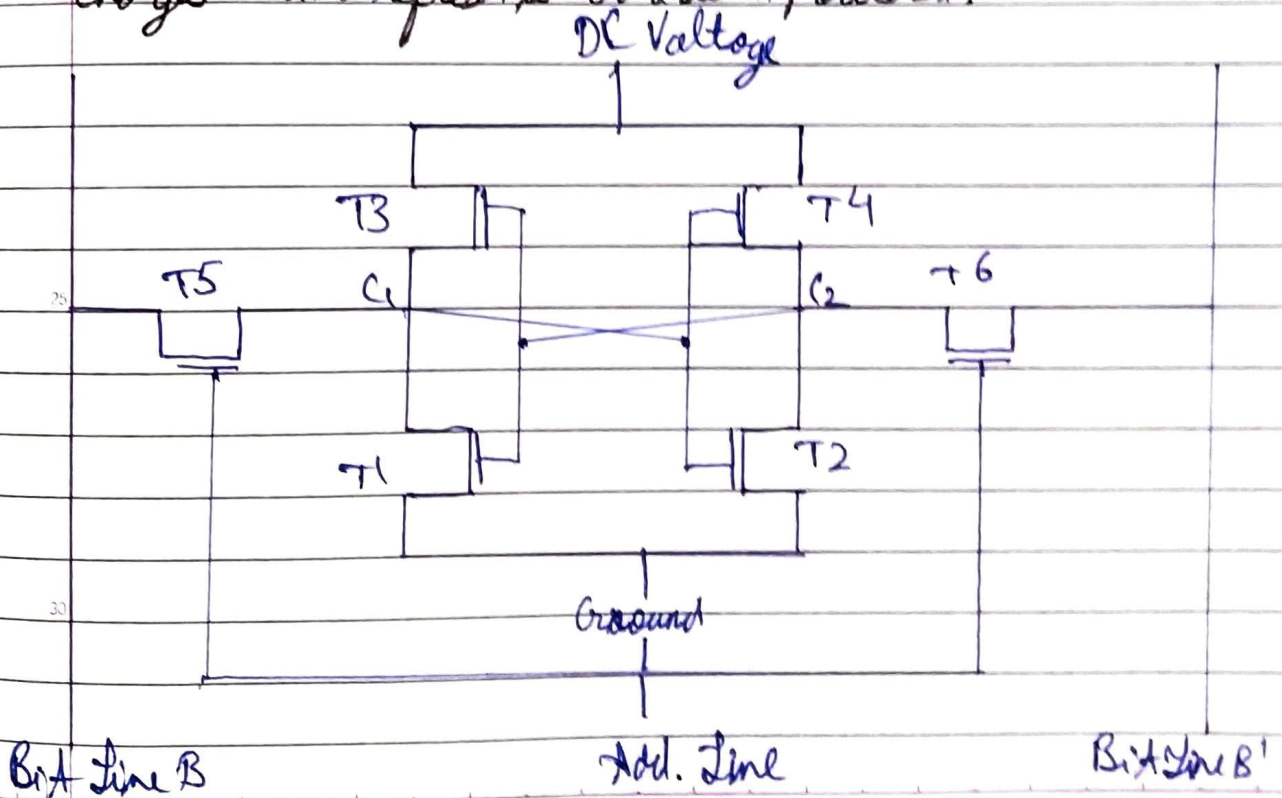 DC Voltage
T3 T4
T5 C1 C2 T6
25
T1 T2
30
Ground
Bit Line B Add. Line Bit Line B'